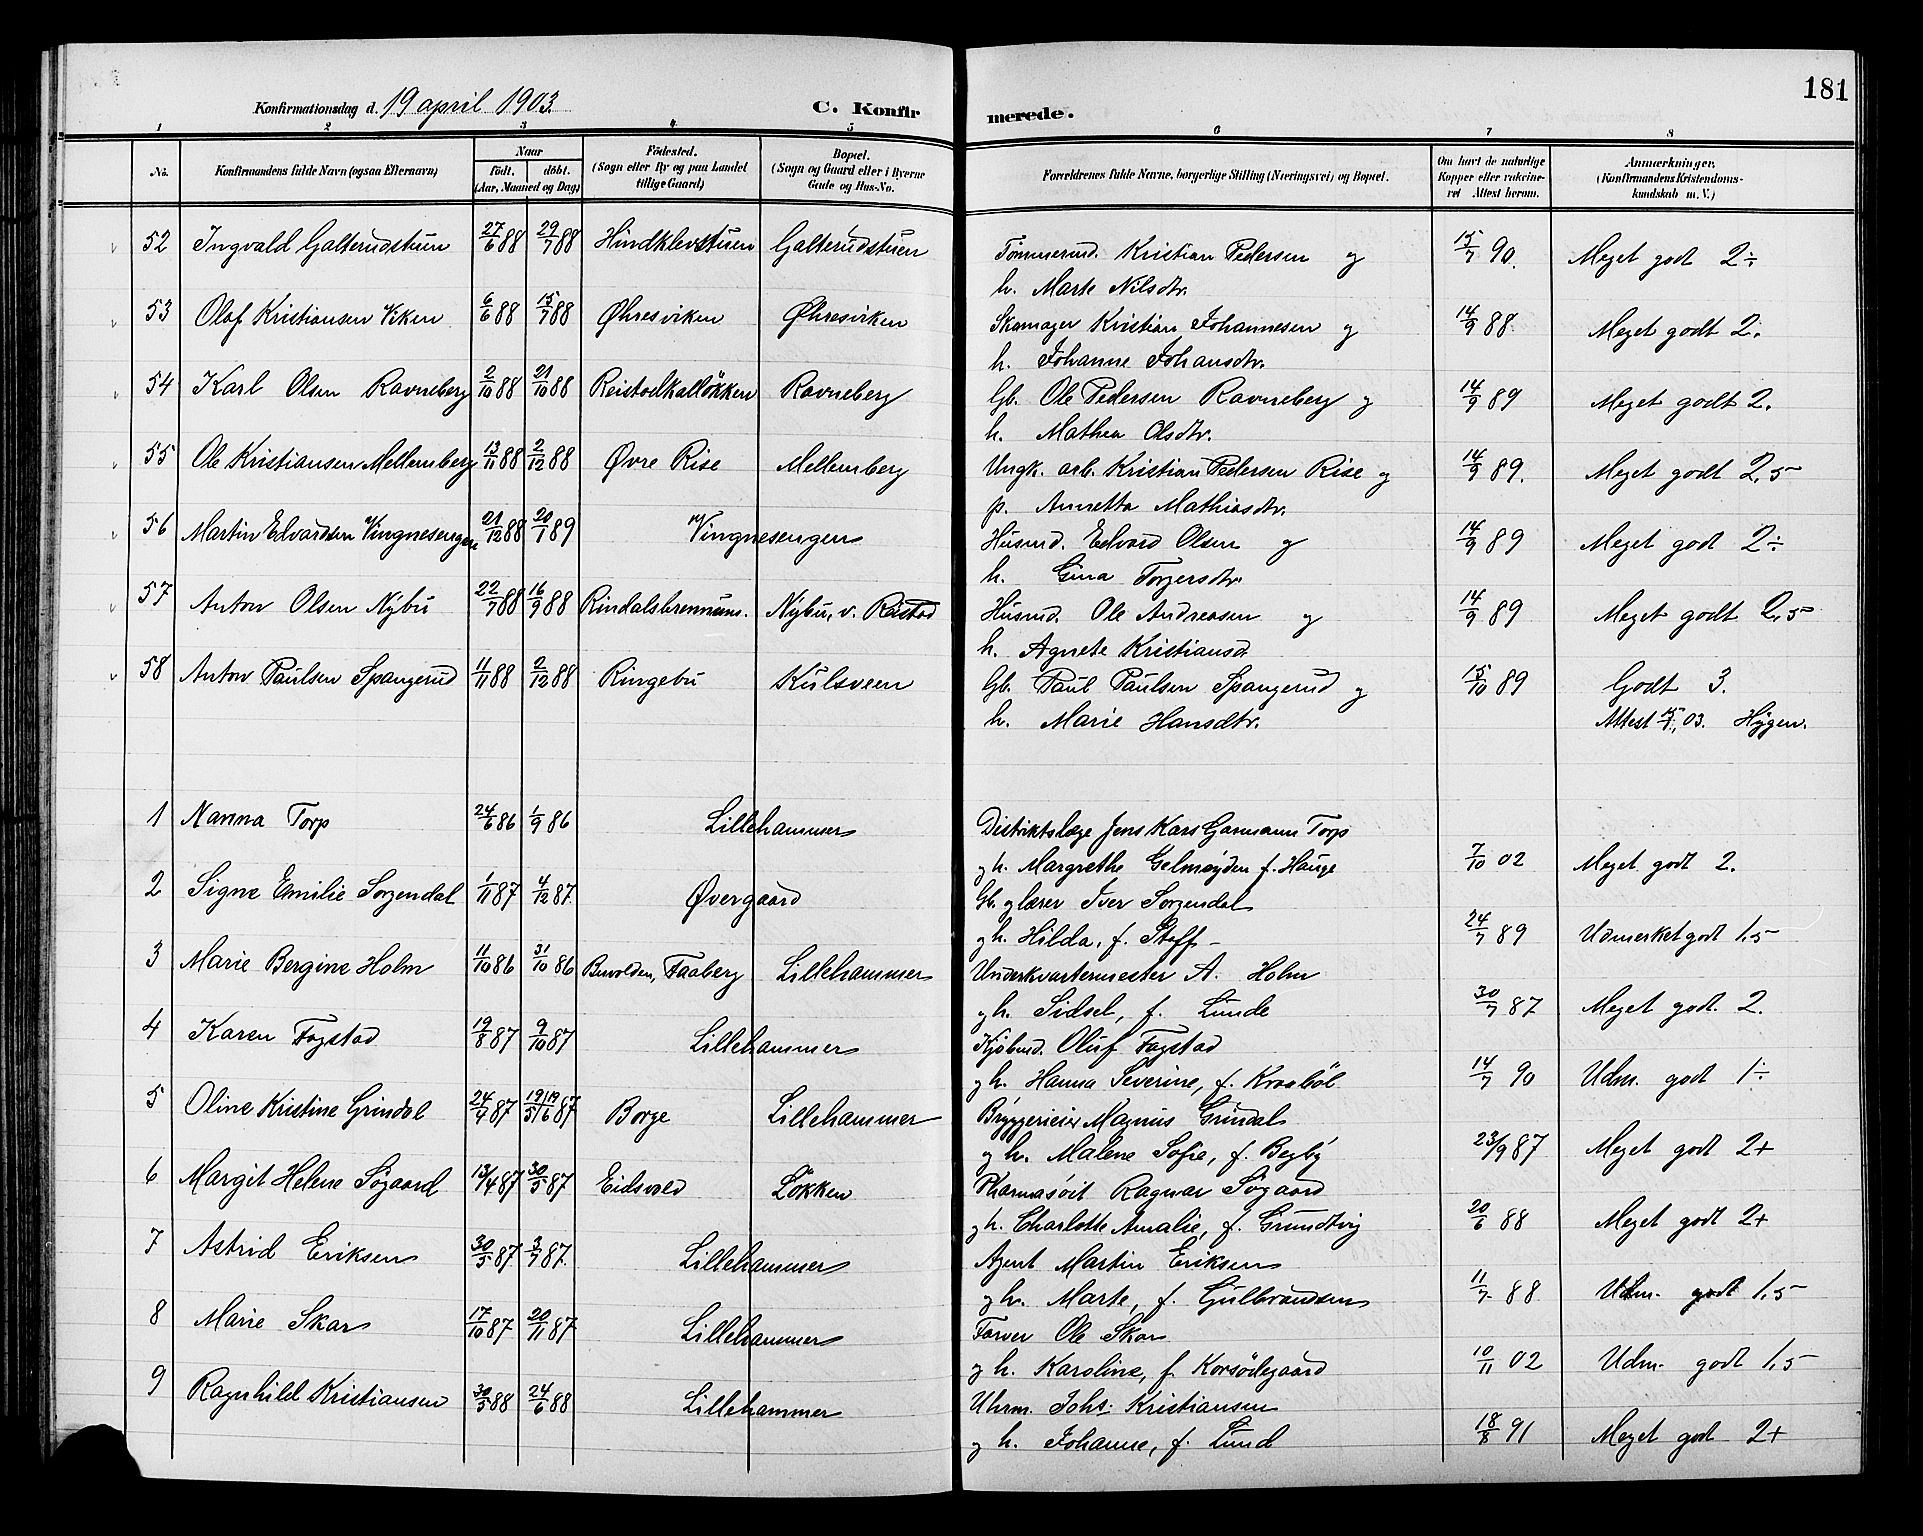 181
Konfirmationsdag d. 19 april 1903. C. Konfirmerede.
1 2 3 4 5 6 7 8
No. Konfirmandens fulde Navn (ogsaa Efternavn) Naar født. døbt. (Aar, Maaned og Dag) Fødested. (Sogn eller By og paa Landet tillige Gaard) Bopæl. (Sogn og Gaard eller i Byerne Gade og Hus-No. Forældrenes fulde Navne, borgerlige Stilling (Næringsvei) og Bopæl. Om havt de naturlige Kopper eller vakcineret Attest herom. Anmærkninger. (Konfirmandens Kristendomskundskab m. V.)
52 Ingvald Galterudstuen 27/6 88 29/7 88 Hindklevstuen Galterudstuen Tømmermd. Kristian Pedersen og 15/7 90. Meget godt 2÷
h. Marte Nilsdtr.
53 Olaf Kristiansen Viken 6/6 88 15/7 88 Øhresviken Øhresviken Skomager Kristian Johannesen og 14/9 88. Meget godt 2.
h. Johanne Johansdtr.
54 Karl Olsen Ravneberg 2/10 88 21/10 88 Reistadkalløkken Ravneberg Gb. Ole Pedersen Ravneberg og 14/9 89 Meget godt 2.
h. Mathea Olsdtr.
55 Ole Kristiansen Mellemberg 13/11 88 2/12 88 Øvre Rise Mellemberg Ungk. arb. Kristian Pedersen Rise og 14/9 89. Meget godt 2,5
p. Annetta Mathiasdtr.
56 Martin Edvardsen Vingnesengen 21/12 88 20/1 89 Vingnesengen Husmd. Edvard Olsen og 14/9 89 Meget godt 2÷
h. Gina Torgersdtr.
57 Anton Olsen Nybu 22/7 88 16/9 88 Rindalsbrennum. Nybu, v. Reistad Husmd. Ole Andreasen og 14/9 89 Meget godt 2,5
h. Agnete Kristiansd.
58 Anton Paulsen Spangerud 11/11 88 2/12 88 Ringebu Kulsveen Gb. Paul Paulsen Spangerud og 15/10 89 Godt 3.
h. Marie Hansdtr. Attest 03. Hygen.
1 Nanna Torp 24/6 86 1/9 86 Lillehammer Distriktslæge Jens Kars Garmann Torp
og h. Margrethe Gelmøyden f. Hauge 7/10 02 Meget godt 2.
2 Signe Emilie Sorgendal 1/11 87 4/12 87. Øvergaard Gb. og lærer Iver Sorgendal
og h. Hilda, f. Steff- 24/7 89 Udmerket godt 1,5
3 Marie Bergine Holm 11/10 86 31/10 86 Buvolden, Faaberg Lillehammer Underkvartermester A. Holm
og h. Sidsel, f. Lunde 30/7 87 Meget godt. 2.
4 Karen Fagstad 19/8 87 9/10 87 Lillehammer Kjøbmd. Oluf Fagstad
og h. Hanna Severine, f. Kraabøl 14/7 90 Udm. godt 1÷
5 Oline Kristine Grindal 24/4 87 19/5 19/6 87 Borge Lillehammer Bryggerieier Magnus Grindal
og h. Malene Sofie, f. Begby 23/9 87 Meget godt 2+
6 Margit Helene Søgaard 13/4 87 30/5 87 Eidsvold Løkken Pharmasøit Ragnar Søgaard
og h. Charlotte Amalie, f. Grundtvig 20/6 88 Meget godt 2+
7 Astrid Eriksen 30/5 87 3/7 87. Lillehammer Agent Martin Eriksen
og h. Marte, f. Gulbrandsen 11/7 88 Udm. godt 1,5
8 Marie Skar 17/10 87 20/11 87 Lillehammer Farver Ole Skar
og h. Karoline, f. Korsødegaard 10/11 02 Udm. godt 1,5
9 Ragnhild Kristiansen 30/5 88 24/6 88 Lillehammer Uhrm. Johs. Kristiansen
og h. Johanne, f. Lund 18/8 91 Meget godt 2+